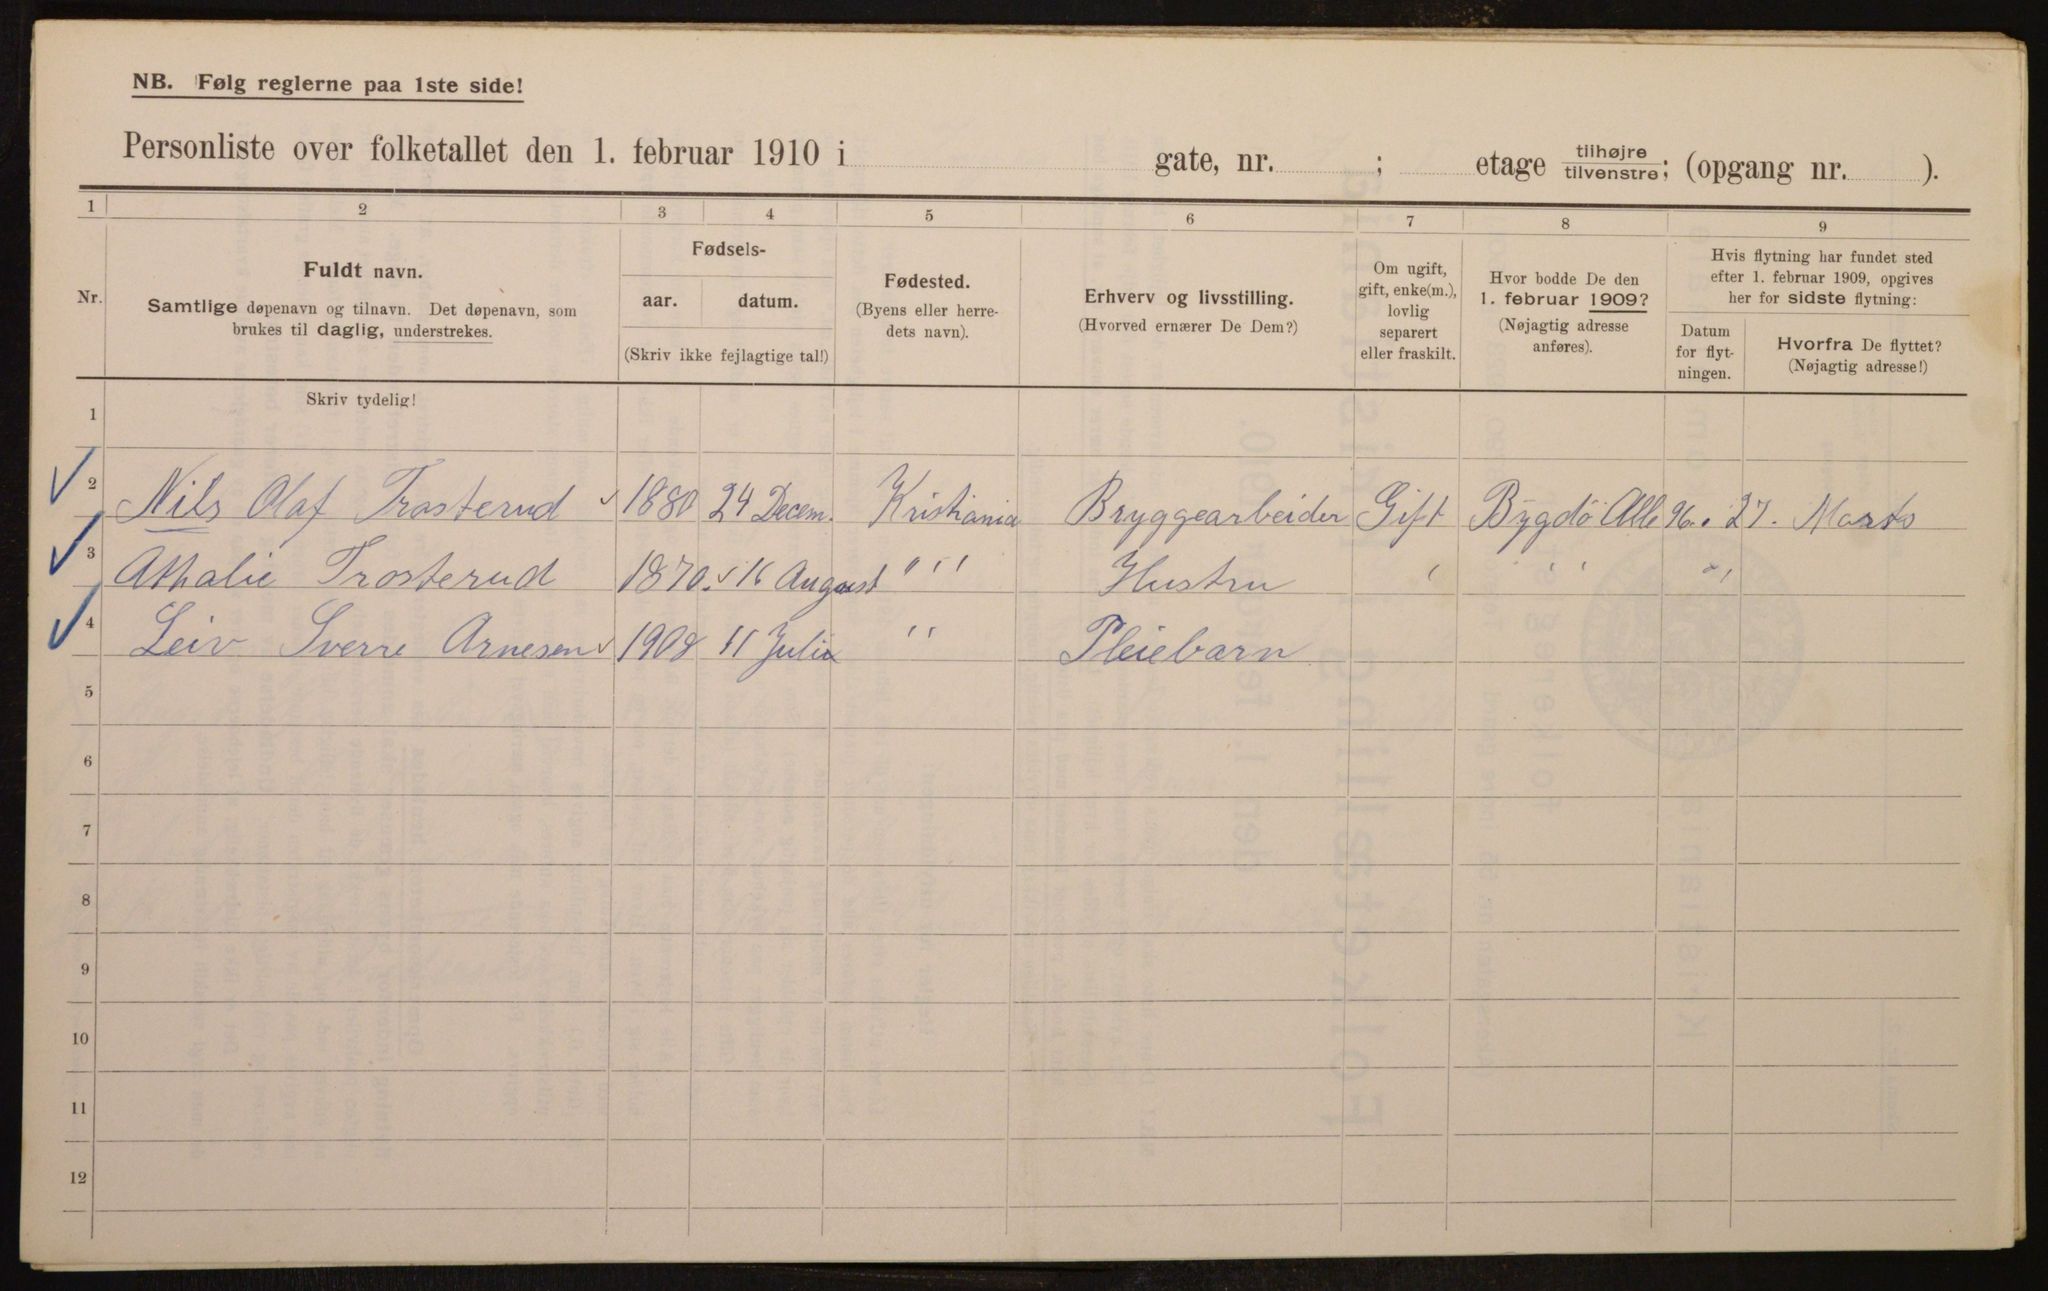 NB. Følg reglerne paa 1ste side!
Personliste over folketallet den 1. februar 1910 i gate, nr. ; etage tilhøjre/tilvenstre; (opgang nr. ).
1 2 3 4 5 6 7 8 9
Nr.
Fuldt navn.
Samtlige døpenavn og tilnavn. Det døpenavn, som
brukes til daglig, understrekes.
Fødsels-
aar. datum.
(Skriv ikke fejlagtige tal!)
Fødested.
(Byens eller herre-
dets navn).
Erhverv og livsstilling.
(Hvorved ernærer De Dem?)
Om ugift,
gift, enke(m.),
lovlig
separert
eller fraskilt.
Hvor bodde De den
1. februar 1909?
(Nøjagtig adresse
anføres).
Hvis flytning har fundet sted
efter 1. februar 1909, opgives
her for sidste flytning:
Datum
for flyt-
ningen.
Hvorfra De flyttet?
(Nøjagtig adresse!)
Skriv tydelig!
1
2 Nils Olaf Trosterud 1880 24 Decem. Kristiania Bryggearbeider Gift Bygdö Alle 96. 27. Marts
3 Athalie Trosterud 1870. 16 August " " Hustru " " " "
4 Leiv Sverre Arnesen 1908 11 Juli " Pleiebarn
5
6
7
8
9
10
11
12